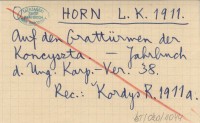 HORN L. K. 1911.
Auf den Grattürmen der
Koncyszta — Jahrbuch
d. Ung. Karp.-Ver. 38.
Rec.: Kordys R. 1911a.